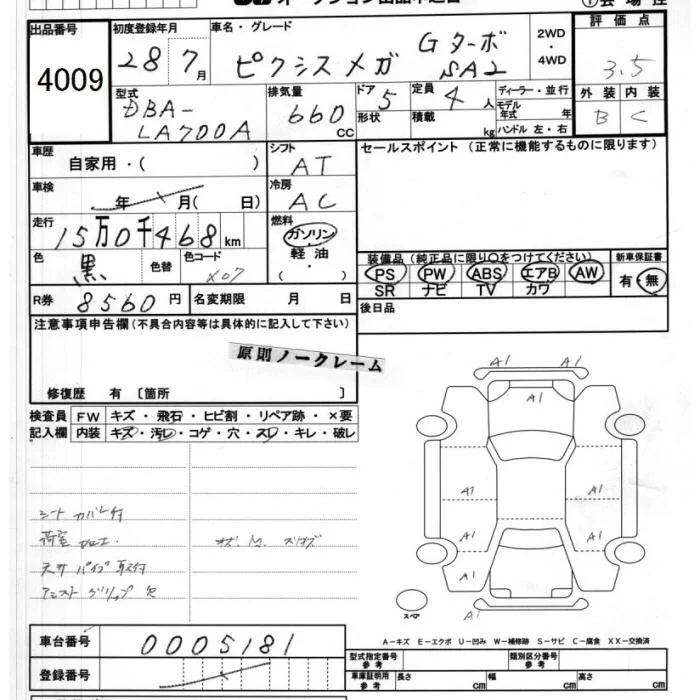 出品番号 4009
初度登録年月 28 7月
車名・グレード ピクシスメガ Gターボ SAⅡ
2WD・4WD
評価点 3.5
外装 B 内装 C
型式 DBA-LA700A
排気量 660 CC
ドア 5 定員 4人
形状 積載 kg
ディーラー・並行
モデル年式 年
ハンドル 左・右
車歴 自家用・( )
シフト AT
セールスポイント(正常に機能するものに限ります)
車検 年 月( 日)
冷房 AC
走行 15万0千468km
燃料 ガソリン 軽油・( )
色 黒 色替 色コード X07
装備品(純正品に限り○をつけてください)
新車保証書 有・無
PS PW ABS エアB AW
SR ナビ TV カワ
R券 8560円 名変期限 月 日
後日品
注意事項申告欄(不具合内容等は具体的に記入して下さい)
原則ノークレーム
修復歴 有〔箇所 〕
検査員記入欄 FW キズ・飛石・ヒビ割・リペア跡・×要
内装 キズ・汚レ・コゲ・穴・スレ・キレ・破レ
シートカバー付
天井 パイプ取付
アシストグリップ欠
A1 A1
A1
A1 A1
A1 A1
A1
A1
スペア
A-キズ E-エクボ U-凹み W-補修跡 S-サビ C-腐食 XX-交換済
車台番号 0005181
型式指定番号 参考 類別区分番号 参考
登録番号
車庫証明用 参考 長さ cm 幅 cm 高さ cm